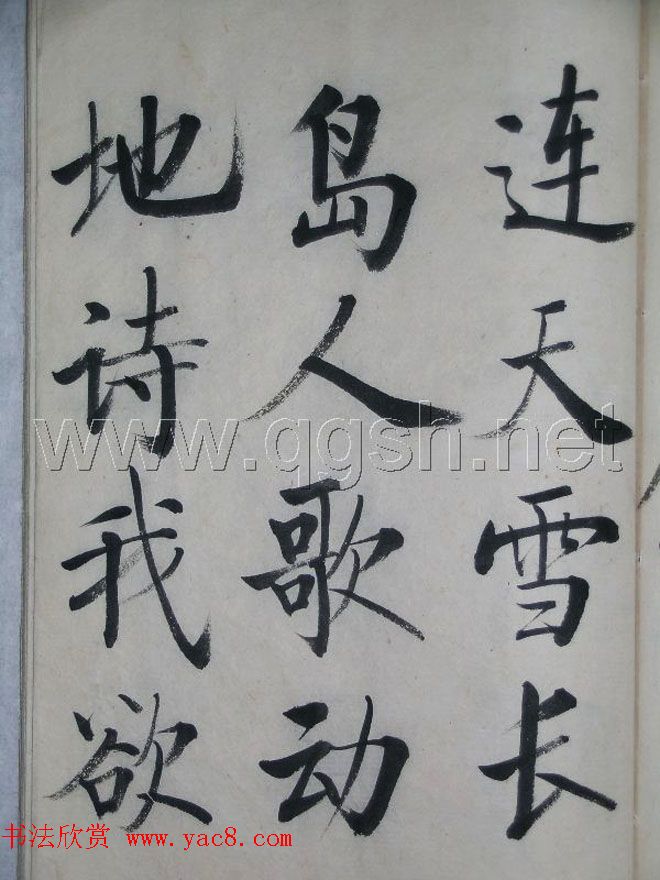 连天雪长
岛人歌动
地诗我欲
www.qgsh.net
书法欣赏 www.yac8.com